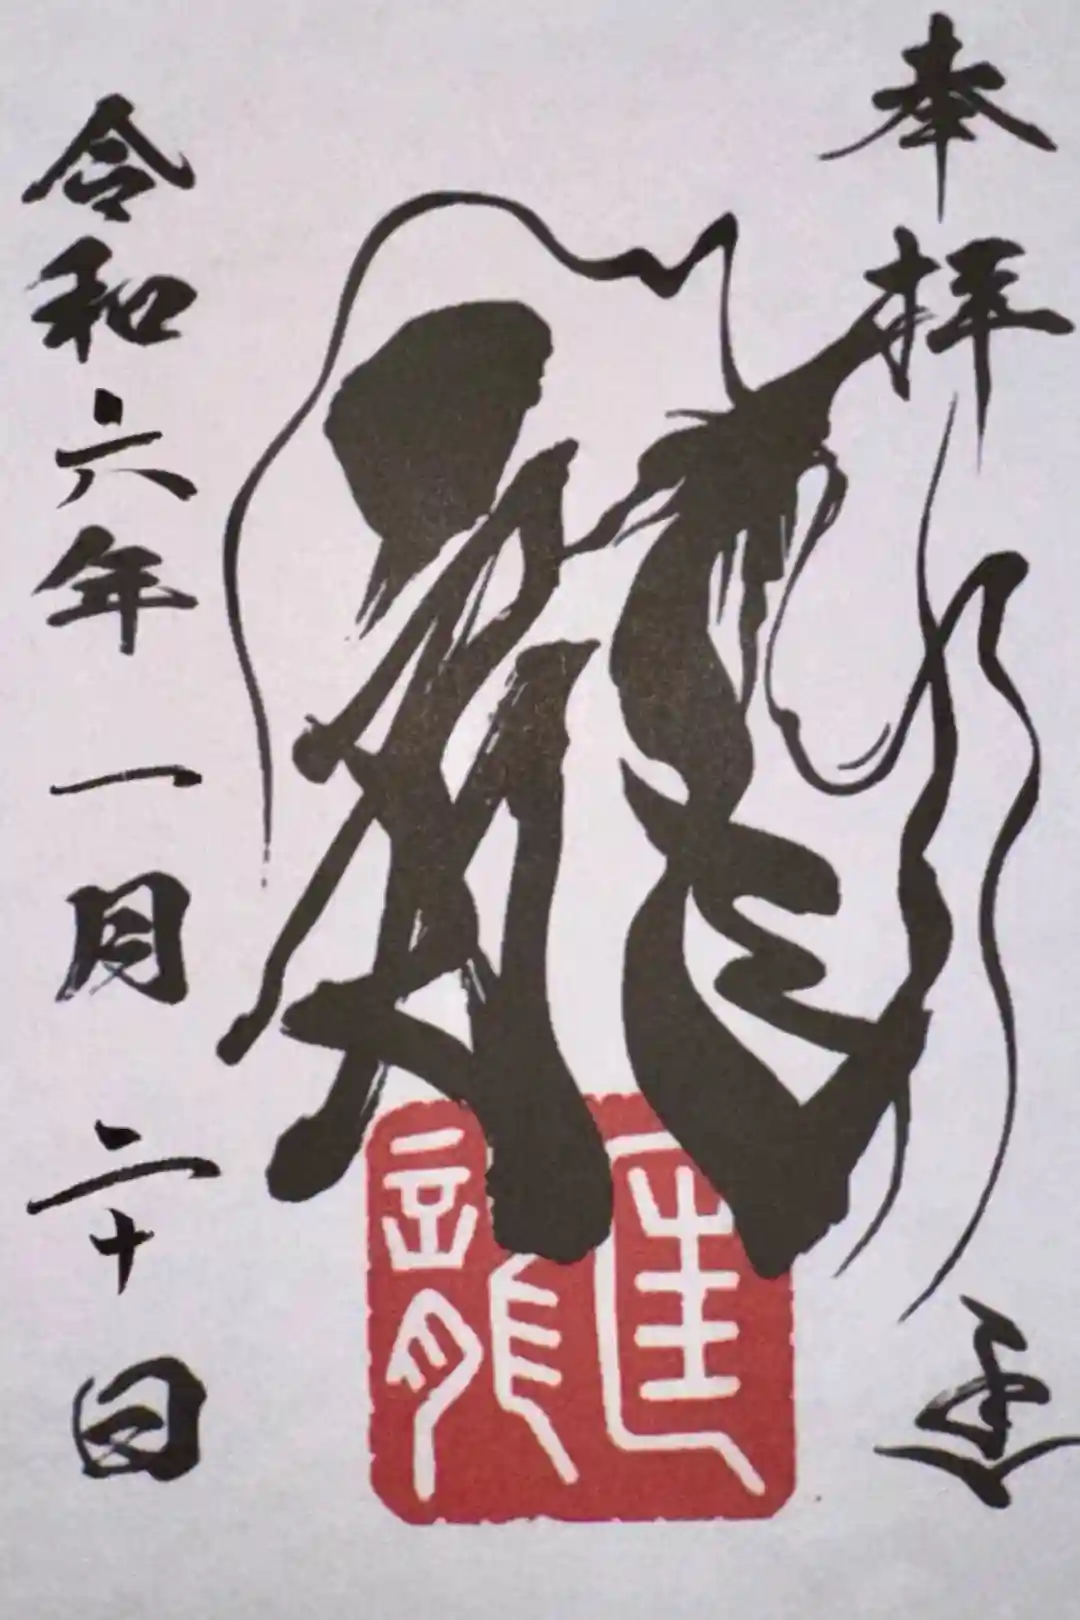 奉拝
龍
龍
令和六年一月二十日